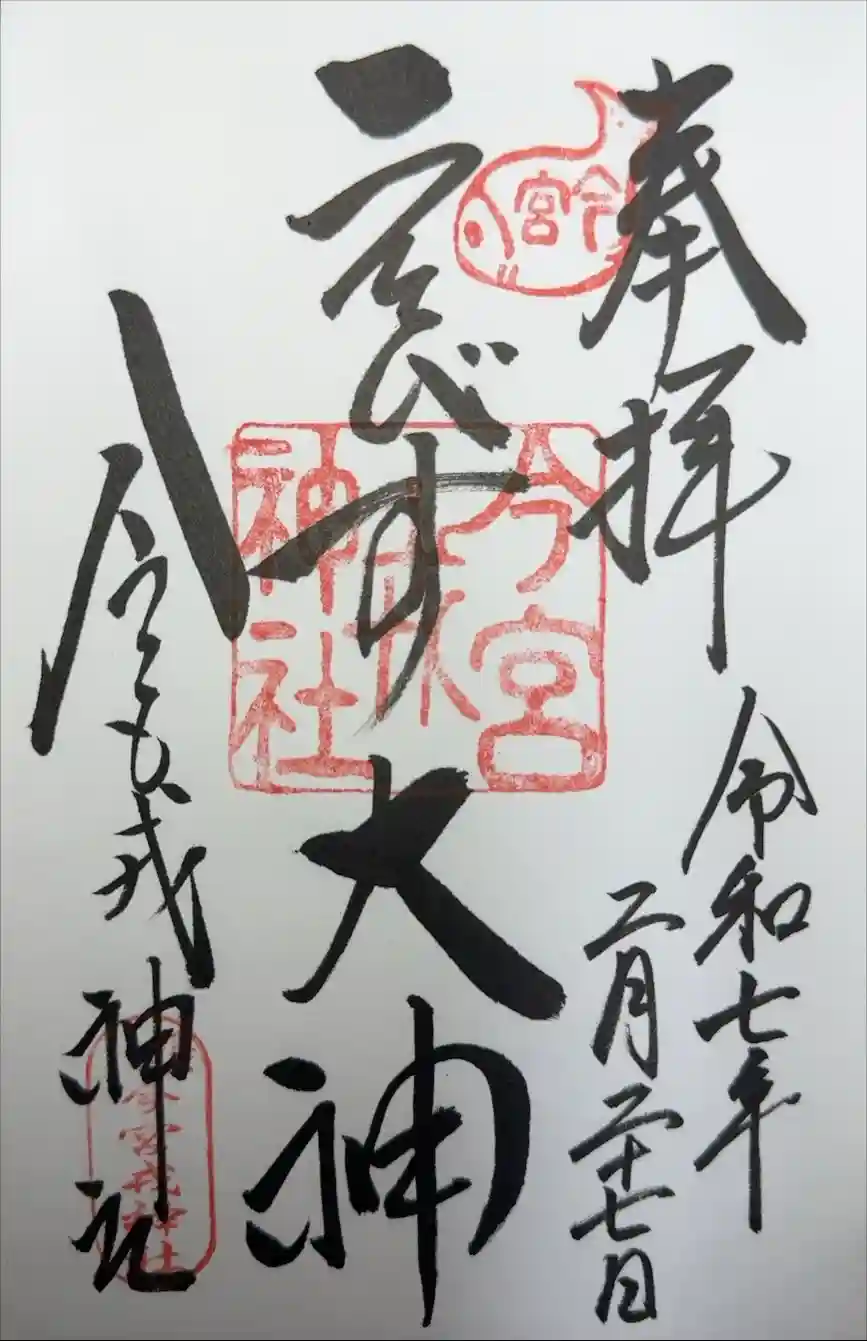 奉拝
令和七年
二月二十七日
今宮
ゑびす大神
今宮戎神社
今宮戎神社
今宮戎神社